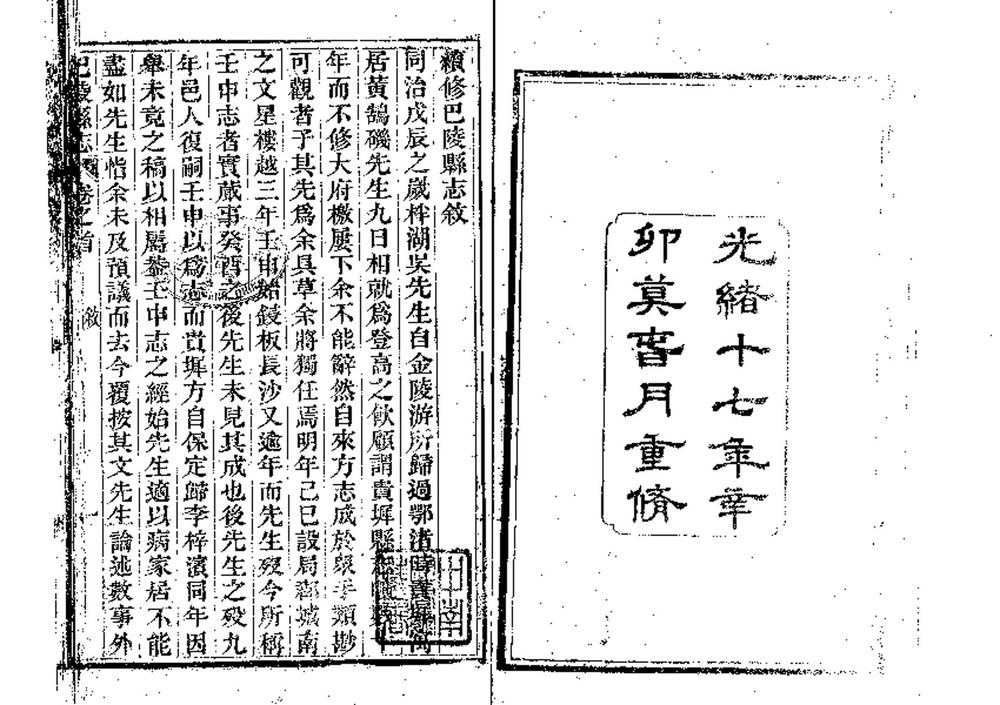 光緒十七年辛
卯莫春月重脩
續修巴陵縣志敘
同治戊辰之歲梓湖吳先生自金陵游所歸過鄂渚時貴墀寓
居黃鵠磯先生九日相就為登高之飲顧謂貴墀縣
年而不修大府檄屢下余不能辭然自來方志成於眾手類尠
可觀者予其先為余具草余將獨任焉明年己巳設局郡城南
之文星樓越三年壬申始鋟板長沙又逾年而先生歿今所稱
壬申志者實蕆事癸酉之後先生未見其成也後先生之歿九
年邑人復嗣壬申以為志而貴墀方自保定歸李梓濱同年因
舉未竟之稿以相屬蓋壬申志之經始先生適以病家居不能
盡如先生恉余未及預議而去今覆按其文先生論述數事外
巴陵縣志 卷之首 敘 一